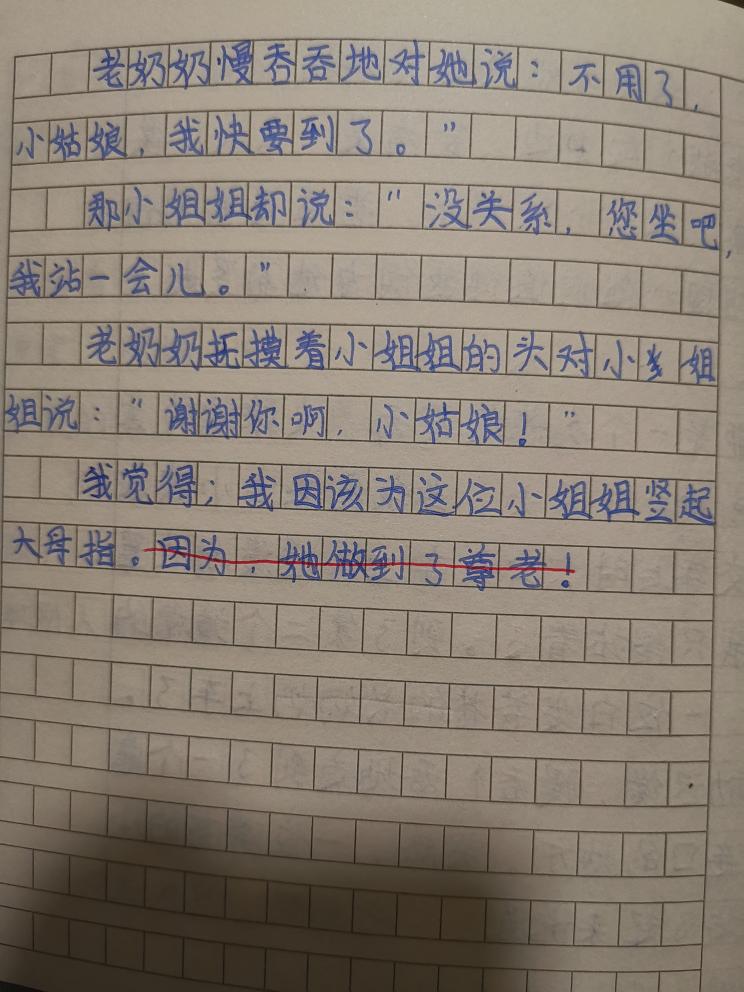 老奶奶慢吞吞地对她说：不用了，
小姑娘，我快要到了。”
那小姐姐却说：“没关系，您坐吧，
我站一会儿。”
老奶奶抚摸着小姐姐的头对小姐
姐说：“谢谢你啊，小姑娘！”
我觉得；我因该为这位小姐姐竖起
大母指。因为，她做到了尊老！